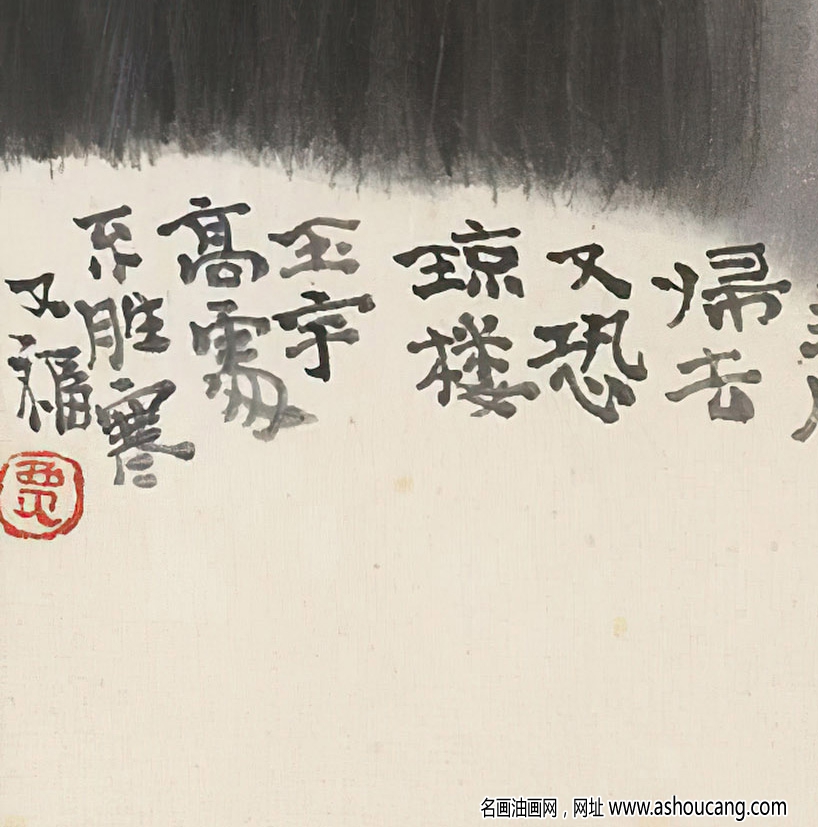 帰去
又恐
琼楼
玉宇
高處
不胜寒
又福
賈
名画油画网，网址 www.ashoucang.com